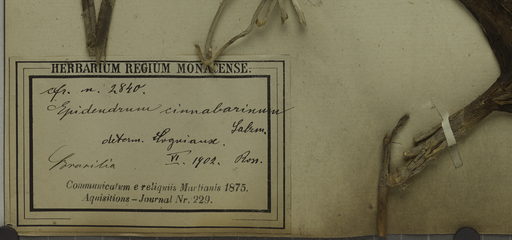 HERBARIUM REGIUM MONACENSE.
cfr. n. 2840.
Epidendrum cinnabarinum
Salzm.
determ. Cogniaux.
Brasilia VI. 1902. Ross.
Communicatum e reliquiis Martianis 1875.
Aquisitions-Journal Nr. 229.